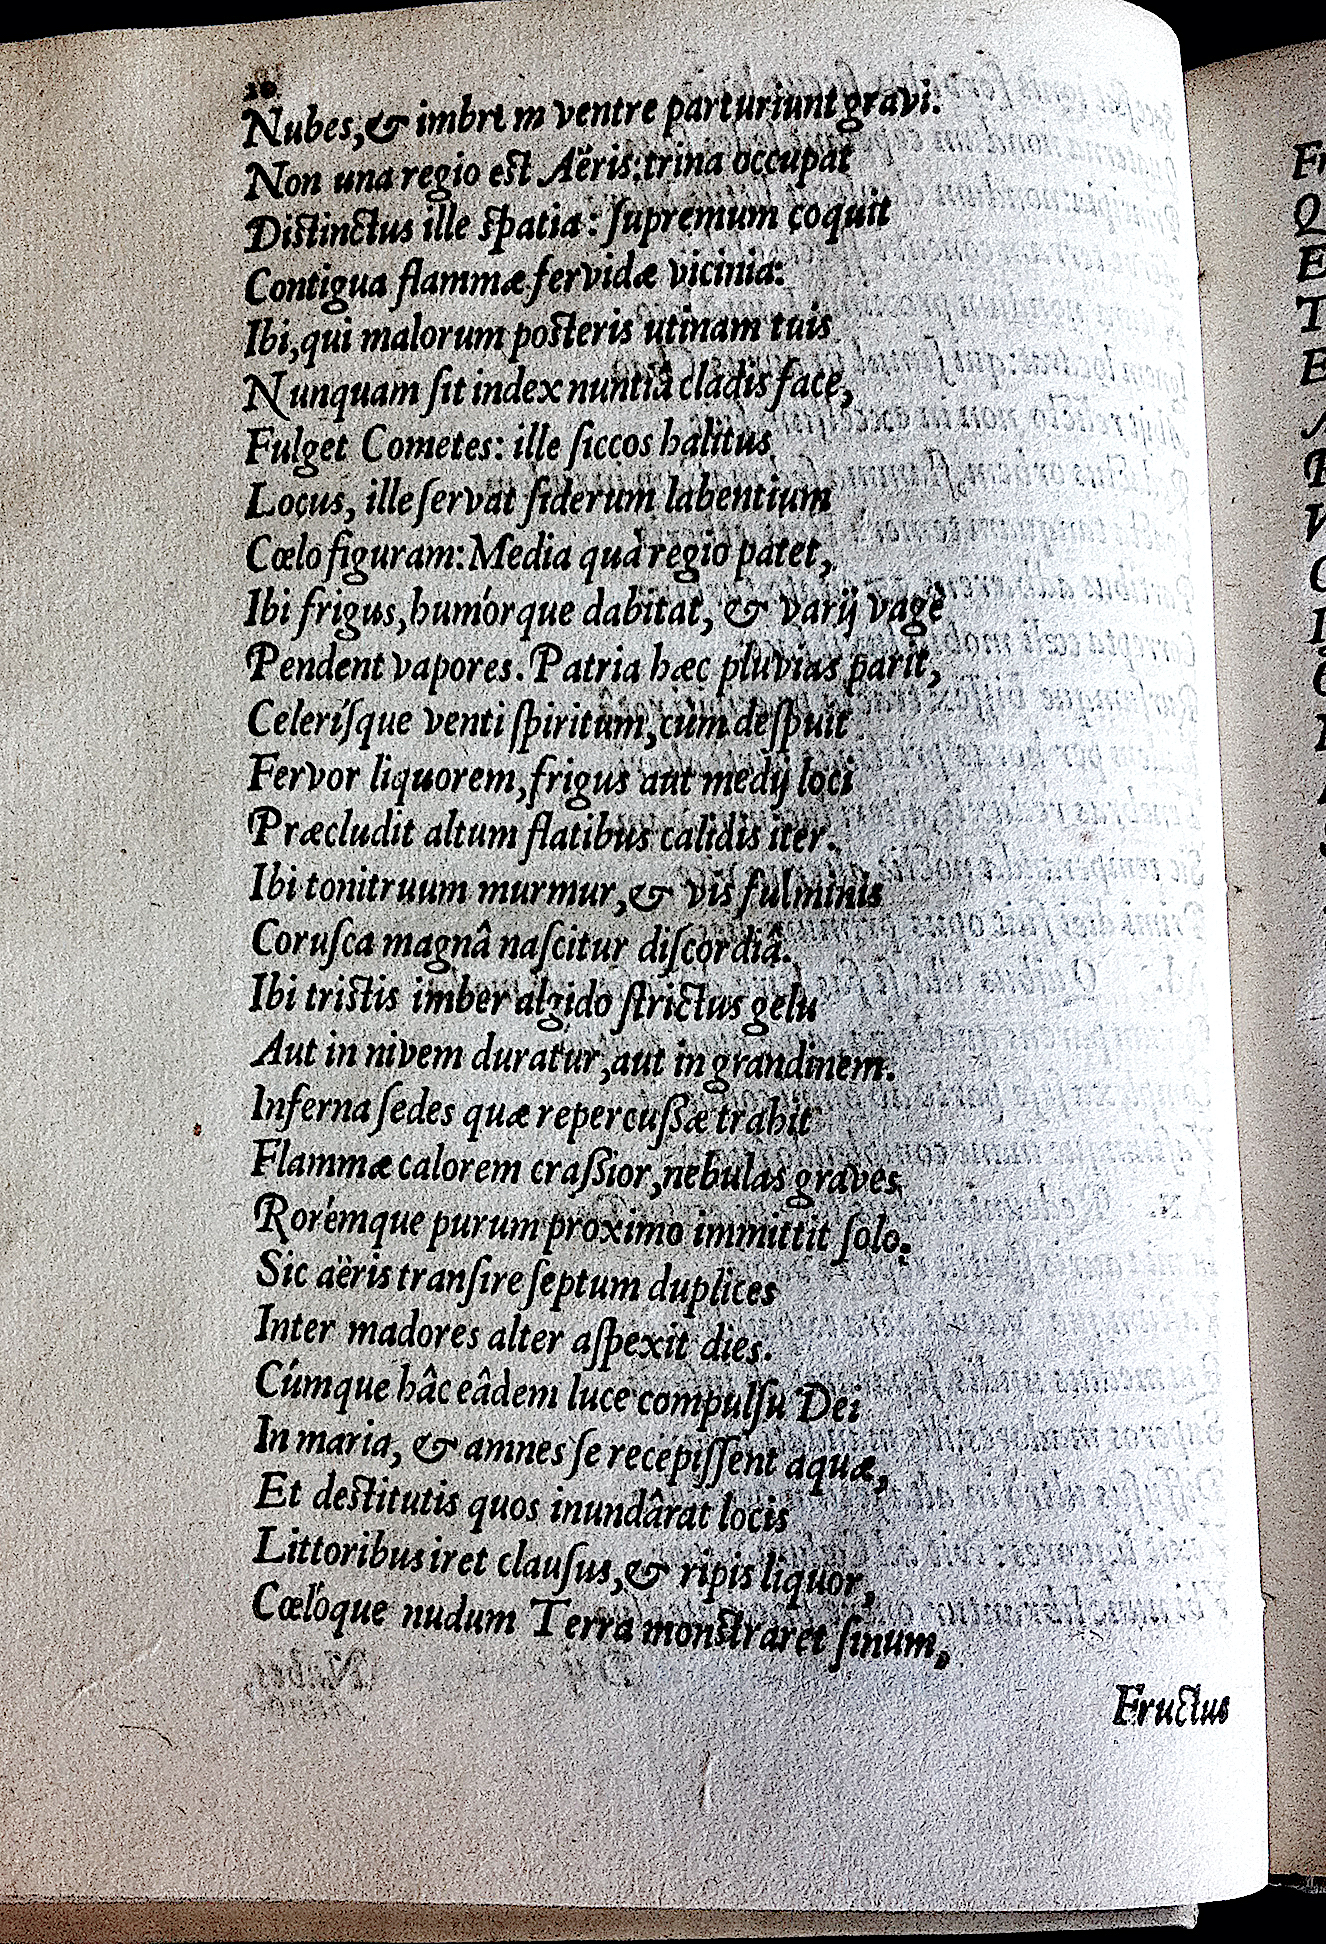 Nubes, & imbrem ventre parturiunt gravi.
Non una regio est Aëris: trina occupat
Distinctus ille spatia: ſupremum coquit
Contigua flammæ fervidæ vicinia:
Ibi, qui malorum posteris utinam tuis
Nunquam ſit index nuntiâ cladis face,
Fulget Cometes: ille ſiccos halitus
Locus, ille ſervat ſiderum labentium
Cœlo figuram: Media quà regio patet,
Ibi frigus, humórque dabitat, & varij vagè
Pendent vapores. Patria hæc pluvias parit,
Celeríſque venti ſpiritum, cùm deſpuit
Fervor liquorem, frigus aut medij loci
Præcludit altum flatibus calidis iter.
Ibi tonitruum murmur, & vis fulminis
Coruſca magnâ naſcitur diſcordiâ.
Ibi tristis imber algido ſtrictus gelu
Aut in nivem duratur, aut in grandinem.
Inferna ſedes quæ repercuſſæ trahit
Flammæ calorem craſſior, nebulas graves
Rorémque purum proximo immittit ſolo.
Sic aëris tranſire ſeptum duplices
Inter madores alter aſpexit dies.
Cúmque hâc eâdem luce compulſu Dei
In maria, & amnes ſe recepiſſent aquæ,
Et destitutis quos inundârat locis
Littoribus iret clauſus, & ripis liquor,
Cœlóque nudum Terra monstraret ſinum,
Fructus